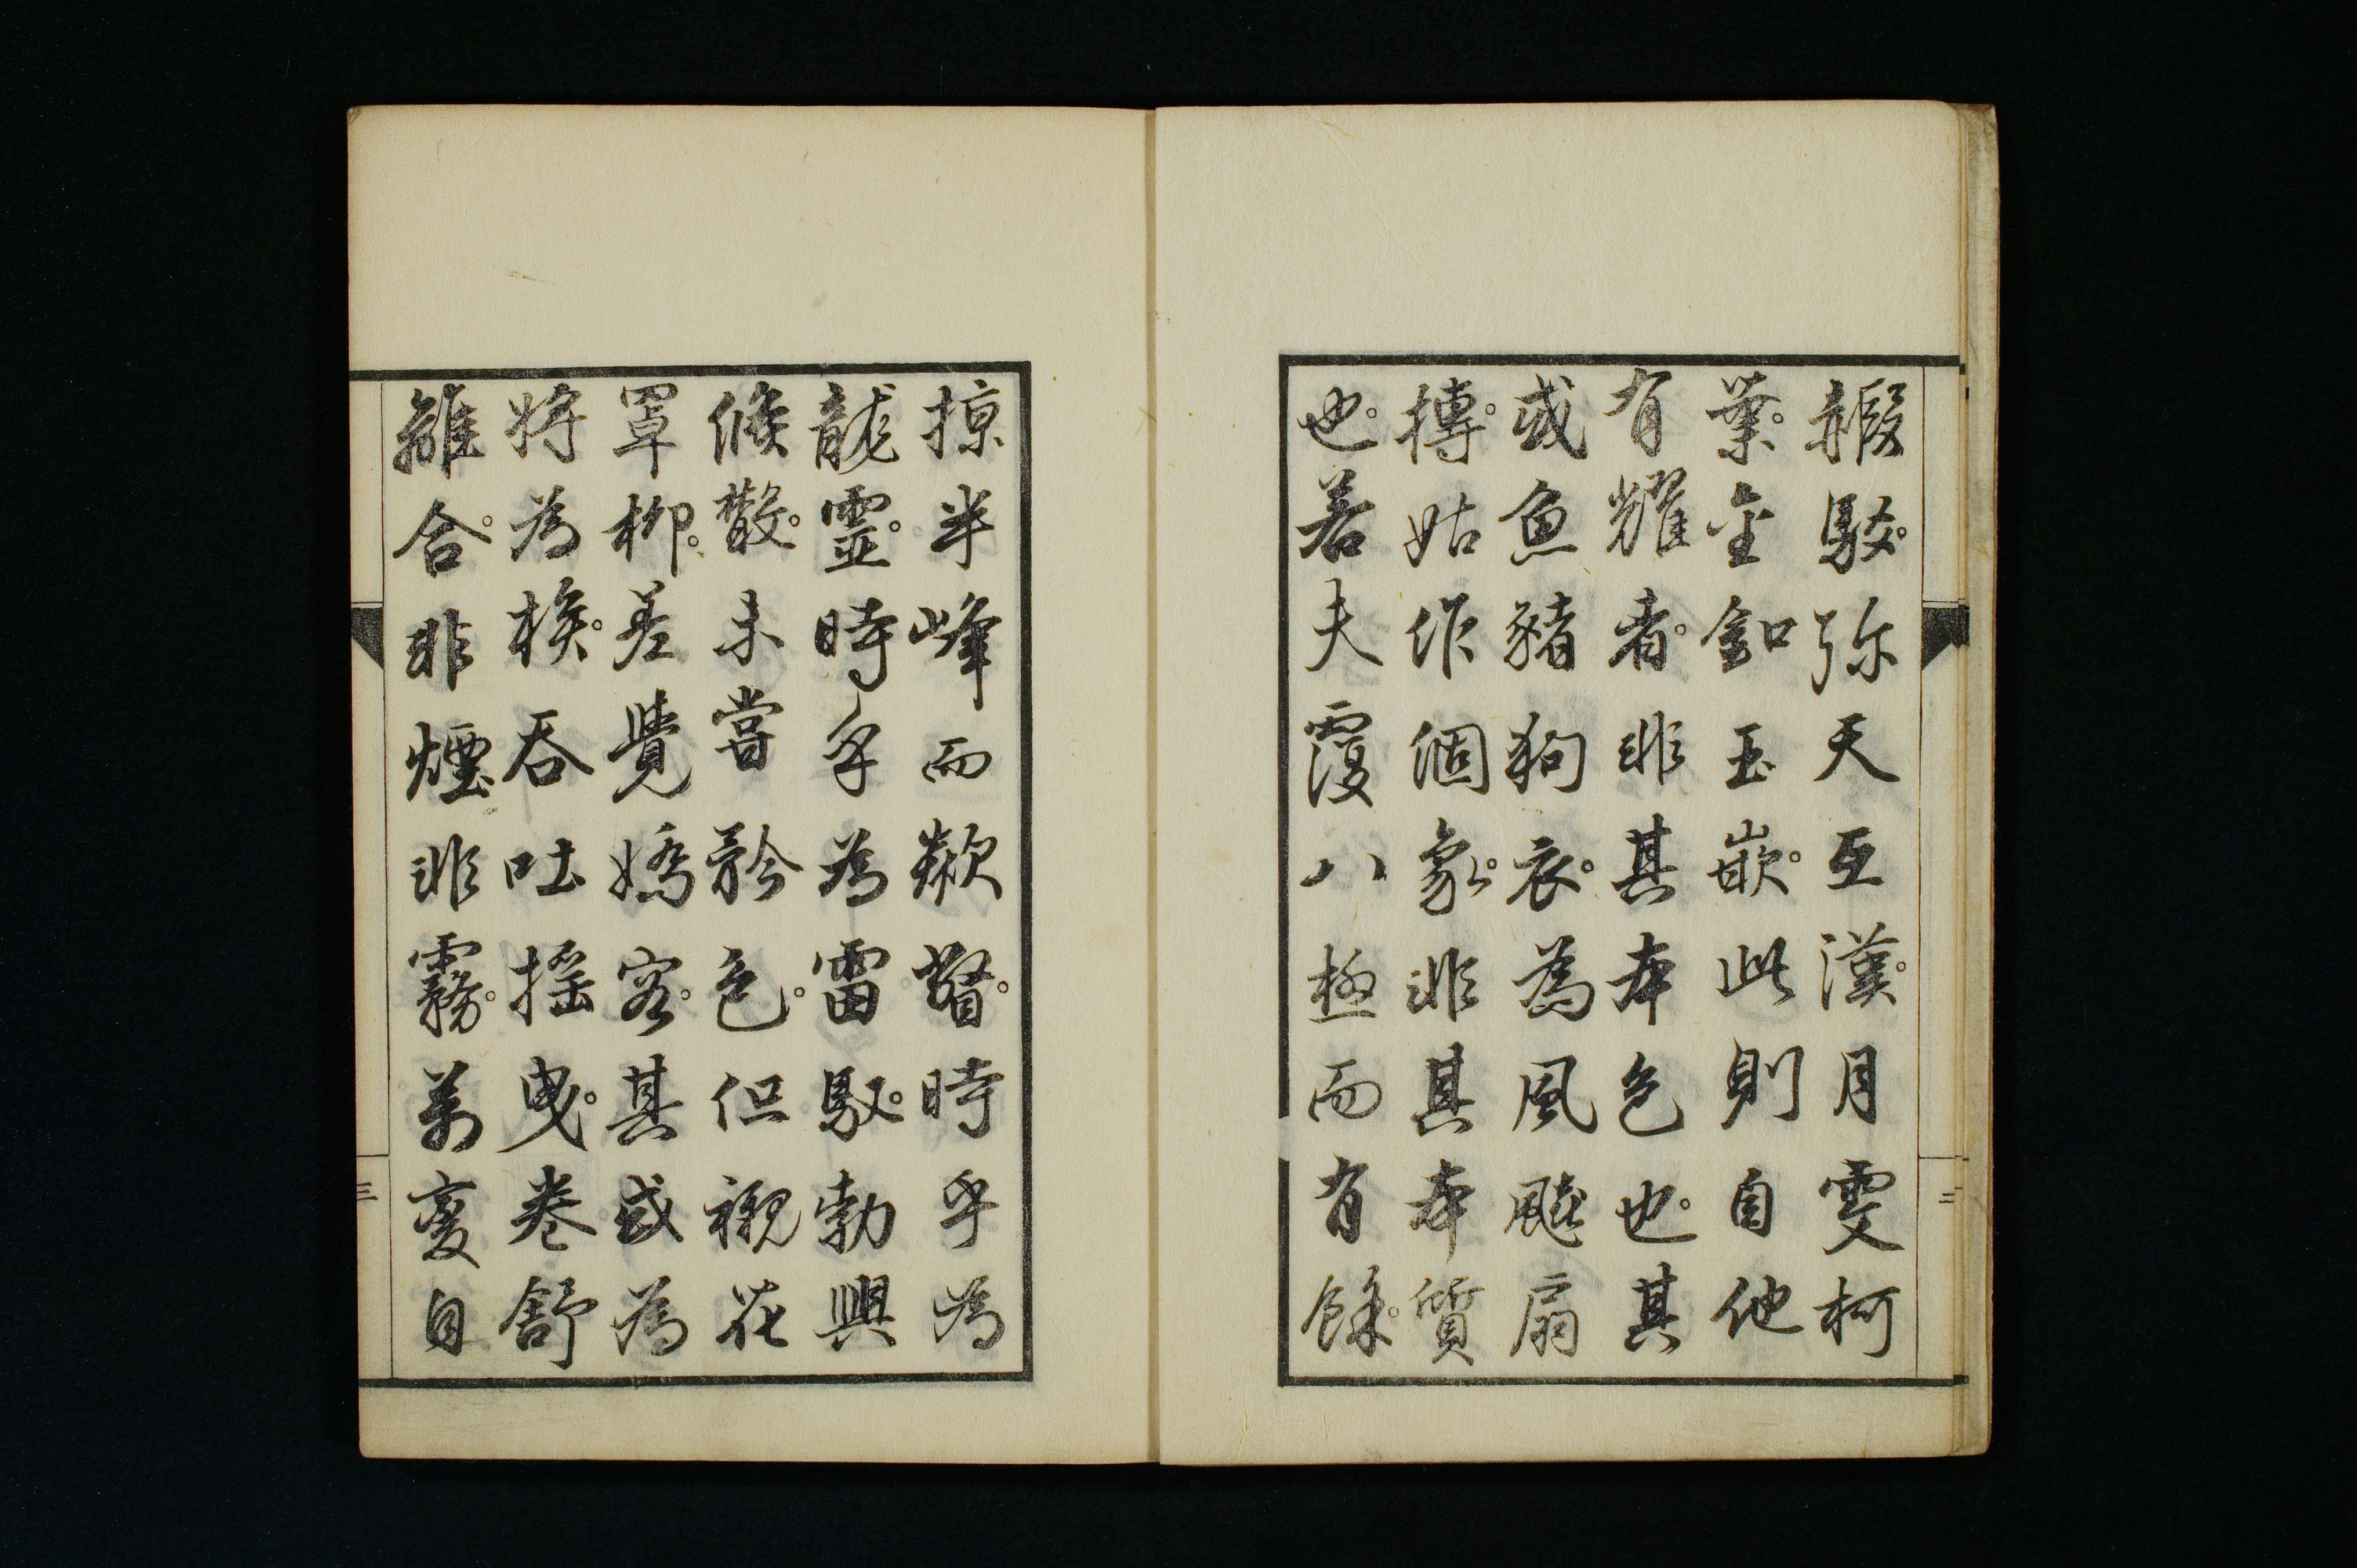 赮駮。弥天亙漢。月雯柯
葉。金釦玉嵌。此則自他
有耀者。非其本色也。其
或魚豬狗衣。為風颷扇
摶。姑作個象。非其本質
也。若夫覆八極而有餘。
掠半峰而歘瞥。時乎為
龍靈。時乎為雷馭。勃興
倐散。未嘗矜色。但襯花
罩柳。差覺嬌容。其或為
將為模。吞吐搖曳。卷舒
離合。非煙非霧。萬變自
三
三